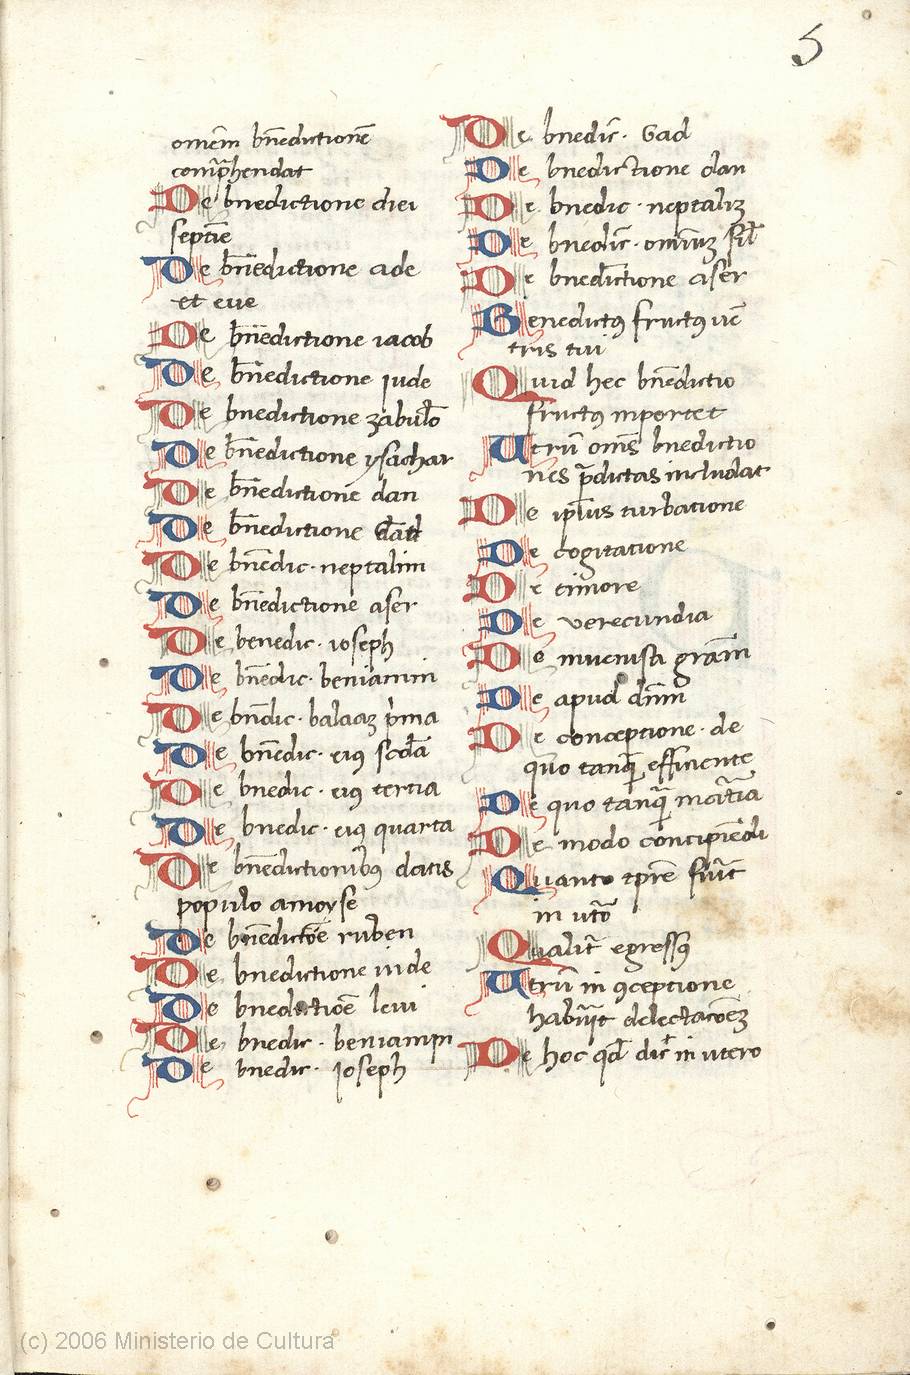 5
omēm bn̄edictionē
comp̄hendat
De bnedictione diei
septīe
De bn̄edictione ade
et eue
De bn̄edictione iacob
De bn̄edictione iude
De bnedictione zabulō
De bn̄edictione ysachar
De bn̄edictione dan
De bn̄edictione
De bn̄edic· neptalim
De bn̄edictione aser
De benedic· ioseph
De bn̄edic· beniamin
De bn̄dic· balaaz p̄ma
De bn̄edic· eiꝰ scd̄a
De bnedic· eiꝰ tertia
De bnedic· eiꝰ quarta
De bn̄edictionibꝰ datis
populo a moyse
De bn̄edictōe ruben
De bnedictione iude
De bnedictiōe leui
De bnedic· beniamin
De bnedic· ioseph
De bnedic̄· Gad
De bnedictione dan
De bnedic· neptalīz
De bnedic̄· omniuz fil̄
De bnedictione aser
Benedictꝰ fructꝰ uē
tris tui
Quid hec bn̄edictio
fructꝰ inportet
Utrū omīs bnedictio
nes p̄dictas includat
De ip̄ius turbatione
De cogitatione
De timore
De verecundia
De inuenisti grām
De apud dn̄m
De conceptione· de
quo tanqȝ efficiente
De quo tanqȝ māt̄ia
De modo concipiēdi
Quanto tp̄re fiuit
in utō
Qualit̄ egressꝰ
Utrū in ꝯceptione
habūit delectacōez
De hoc qd̄ dic̄ in utero
(c) 2006 Ministerio de Cultura